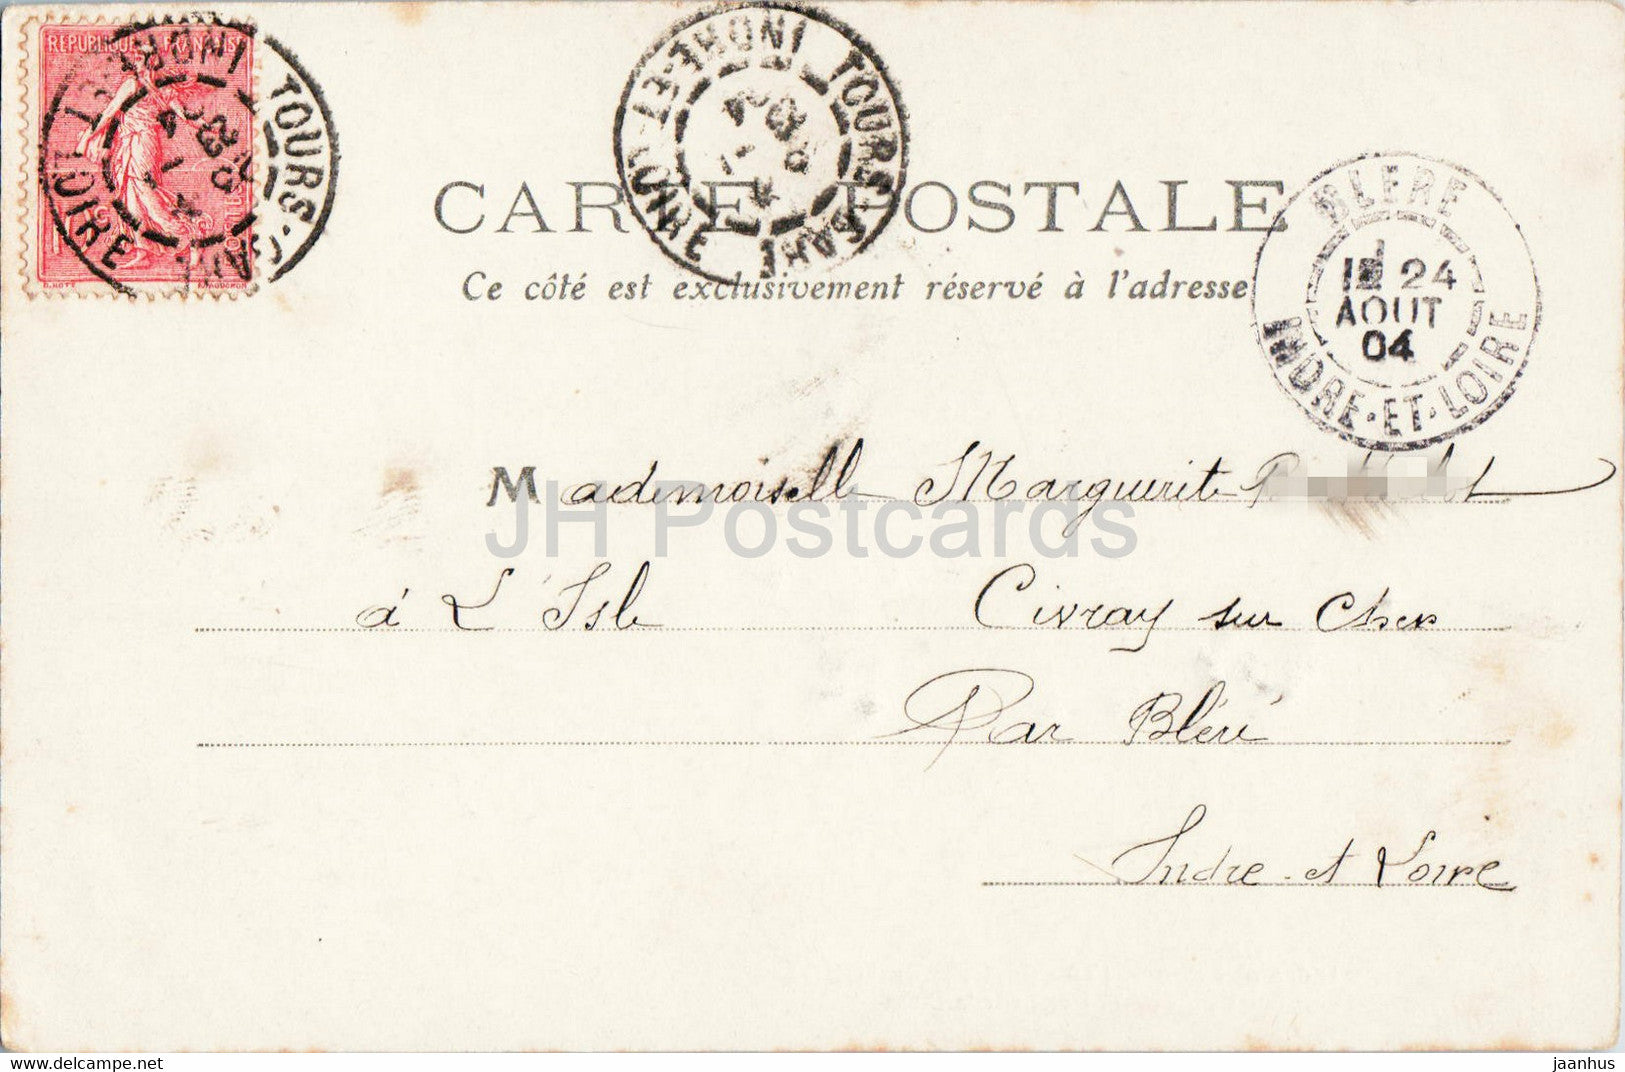 REPUBLIQUE FRANÇAISE
TOURS-GARE
INDRE-ET-LOIRE
TOURS-GARE
INDRE-ET-LOIRE
CARTE POSTALE
Ce côté est exclusivement réservé à l'adresse
BLERE
24
AOUT
04
INDRE-ET-LOIRE
Mademoiselle Marguerite
JH Postcards
à L'Isle Civray sur Cher
Par Bléré
Indre et Loire
www.delcampe.net
jaanhus